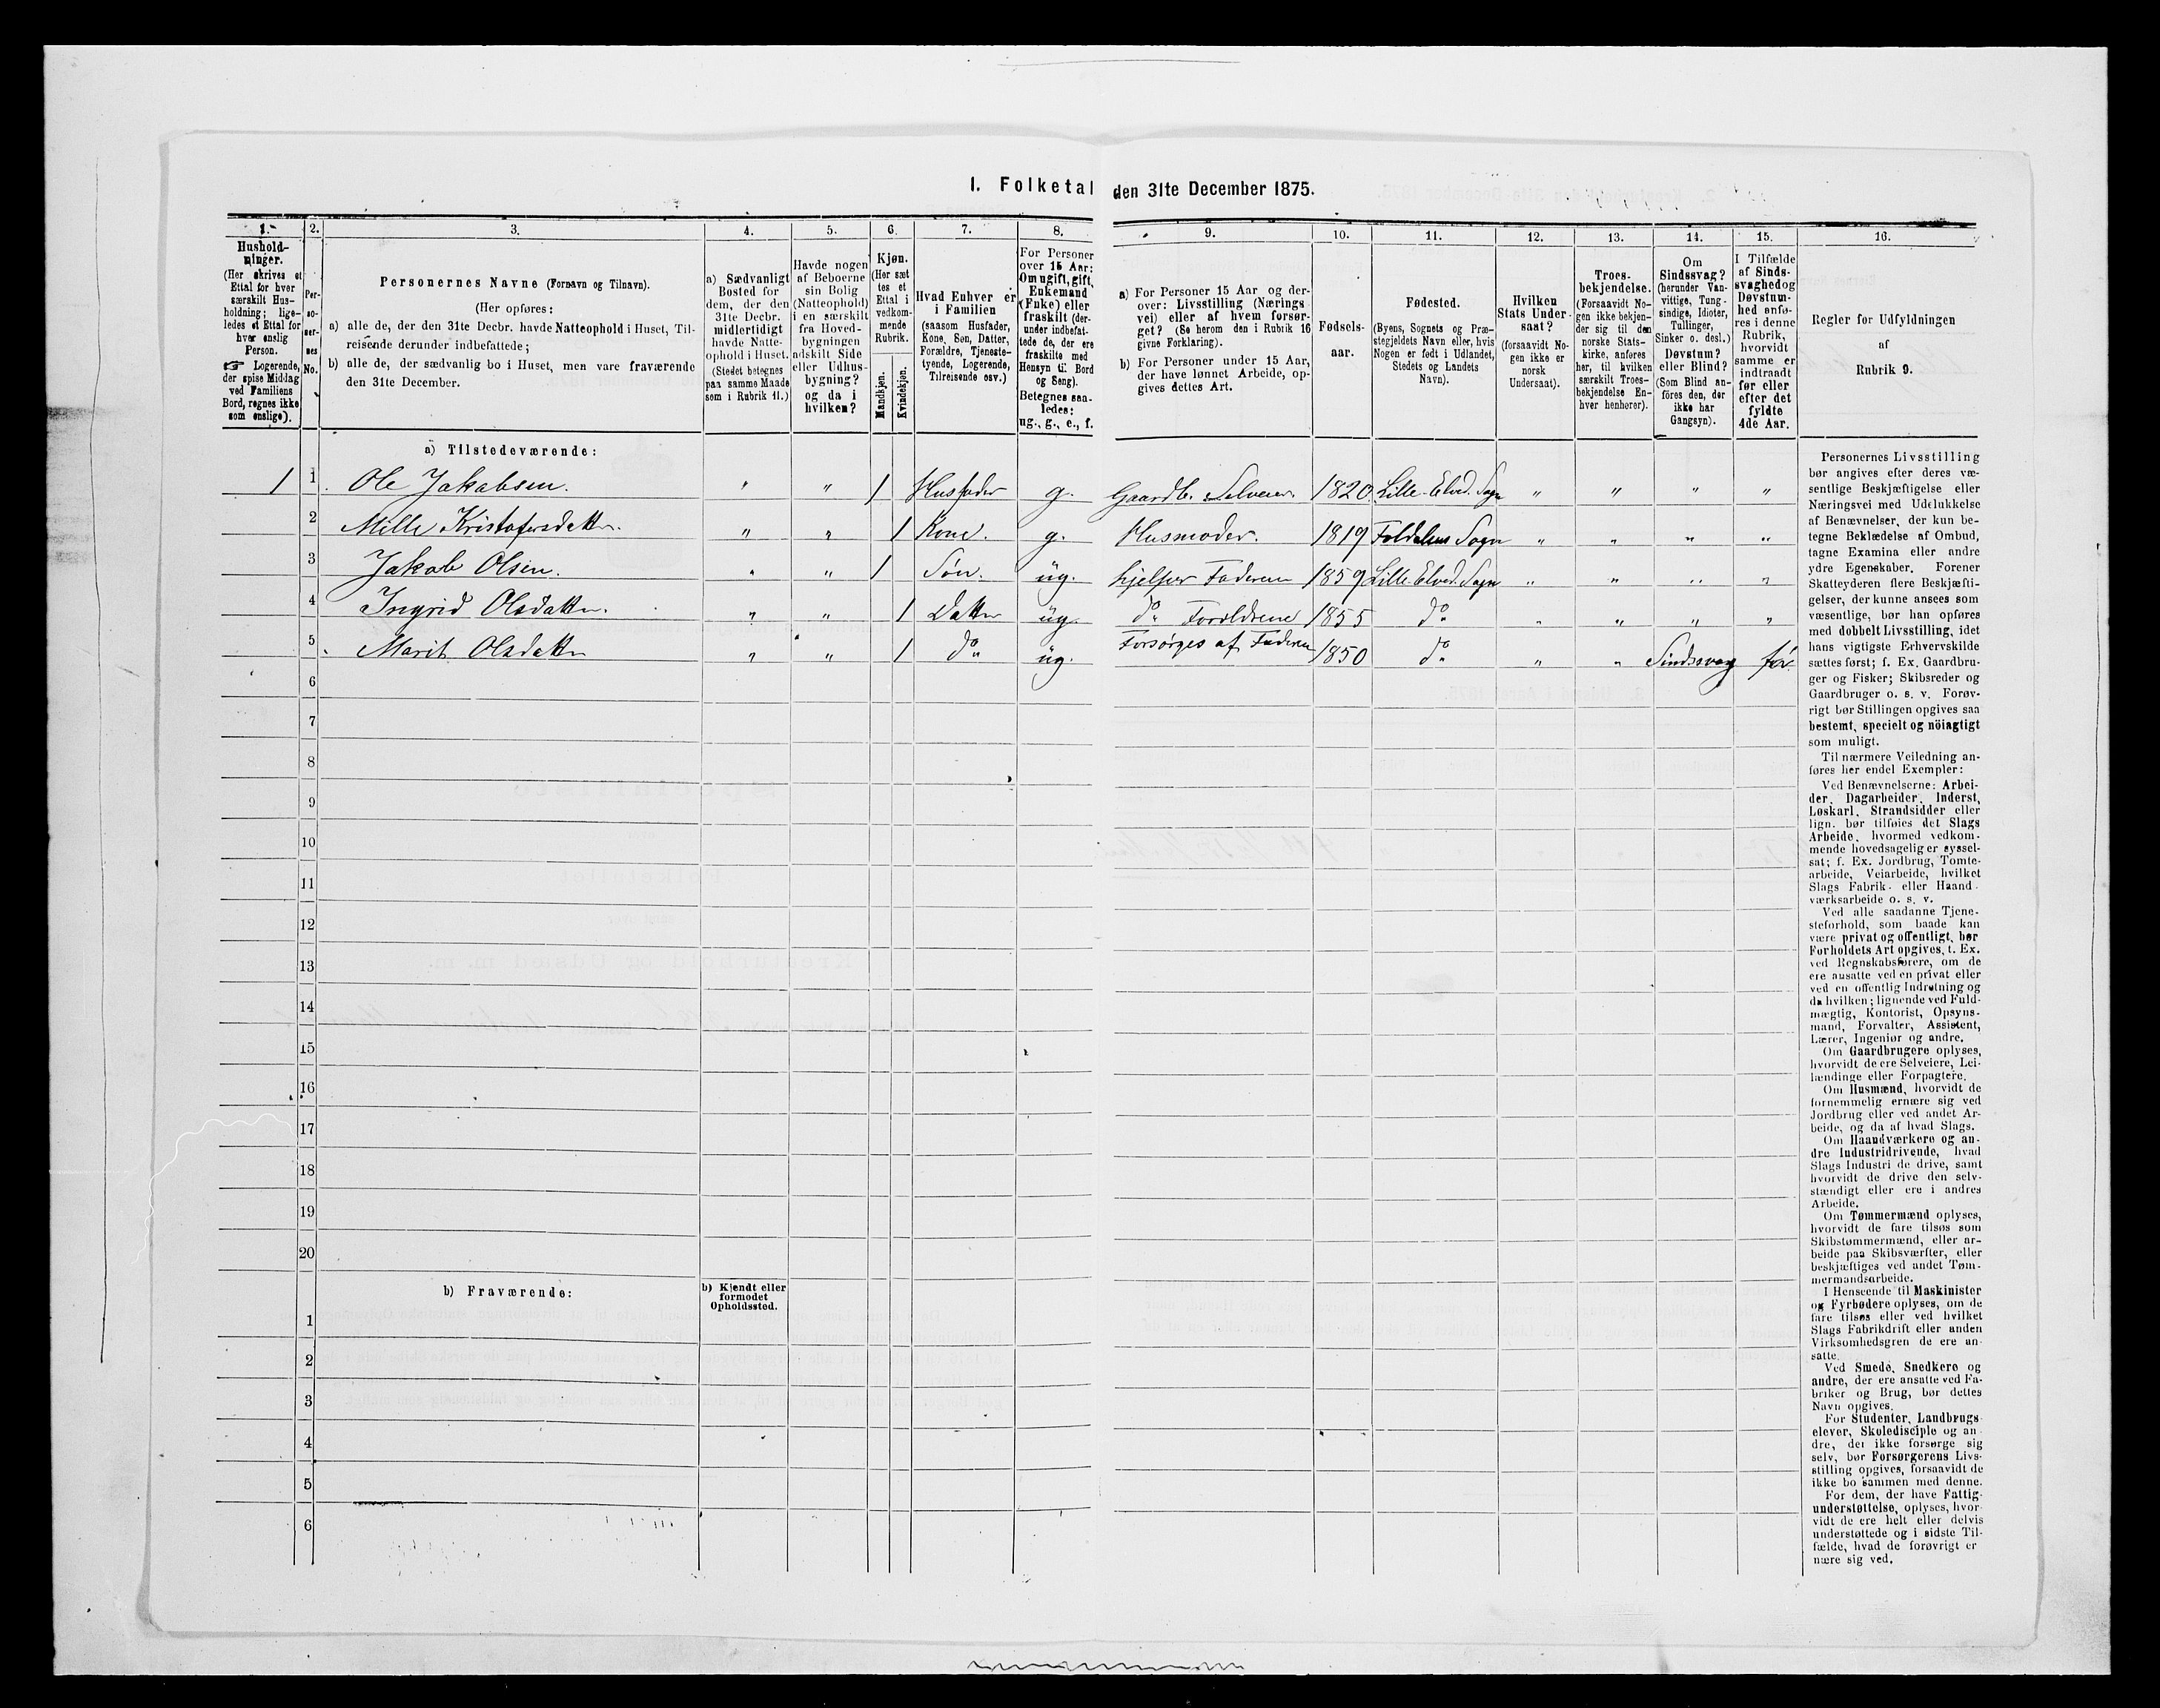 I. Folketal den 31te December 1875.
1. 2. 3. 4. 5. 6. 7. 8. 9. 10. 11. 12. 13. 14. 15. 16.
Hushold-
ninger.
(Her skrives et
Ettal for hver
særskilt Hus-
holdning; lige-
ledes et Ettal for
hver enslig
Person.
☞ Logerende,
der spise Middag
ved Familiens
Bord, regnes ikke
som enslige).
Per-
so-
ner-
nes
No.
Personernes Navne (Fornavn og Tilnavn).
(Her opføres:
a) alle de, der den 31te Decbr. havde Natteophold i Huset, Til-
reisende derunder indbefattede;
b) alle de, der sædvanlig bo i Huset, men vare fraværende
den 31te December.
a) Sædvanligt
Bosted for
dem, der den
31te Decbr.
midlertidigt
havde Natte-
ophold i Huset.
(Stedet betegnes
paa samme Maade
som i Rubrik 11.)
Havde nogen
af Beboerne
sin Bolig
(Natteophold)
i en særskilt
fra Hoved-
bygningen
adskilt Side
eller Udhus-
bygning?
og da i
hvilken?
Kjøn.
(Her sæt
tes et
Ettal i
vedkom-
mende
Rubrik.
Mandkjøn.
Kvindekjøn.
Hvad Enhver er
i Familien
(saasom Husfader,
Kone, Søn, Datter,
Forældre, Tjeneste-
tyende, Logerende,
Tilreisende osv.)
For Personer
over 15 Aar:
Om ugift, gift,
Enkemand
(Enke) eller
fraskilt (der-
under indbefat-
tede de, der ere
fraskilte med
Hensyn til Bord
og Seng).
Betegnes saa-
ledes:
ug., g., e., f.
a) For Personer 15 Aar og der-
over: Livsstilling (Nærings
vei) eller af hvem forsør-
get? (Se herom den i Rubrik 16
givne Forklaring).
b) For Personer under 15 Aar,
der have lønnet Arbeide, op-
gives dettes Art.
Fødsels-
aar.
Fødested.
(Byens, Sognets og Præ-
stegjeldets Navn eller, hvis
Nogen er født i Udlandet,
Stedets og Landets
Navn).
Hvilken
Stats Under-
saat?
(forsaavidt No-
gen ikke er
norsk
Undersaat).
Troes-
bekjendelse.
(Forsaavidt No-
gen ikke bekjen-
der sig til den
norske Stats-
kirke, anføres
her, til hvilken
særskilt Troes-
bekjendelse En-
hver henhører).
Om
Sindssvag?
(herunder Van-
vittige, Tung-
sindige, Idioter,
Tullinger,
Sinker o. desl.)
Døvstum?
eller Blind?
(Som Blind an-
føres den, der
ikke har
Gangsyn).
I Tilfælde
af Sinds-
svaghed og
Døvstum-
hed anfø-
res i denne
Rubrik,
hvorvidt
samme er
indtraadt
før eller
efter det
fyldte
4de Aar.
Regler for Udfyldningen
af
Rubrik 9.
a) Tilstedeværende:
1 1 Ole Jakobsen. " " 1 Husfader g. Gaardb. Selveier. 1820. Lille-Elved. Sogn " " " "
2 Mille Kristofersdatter. " " 1 Kone. g. Husmoder. 1819 Foldalens Sogn " " " "
3 Jakob Olsen. " " 1 Søn. üg. hjelper Faderen 1859 Lille-Elved. Sogn " " " "
4 Ingrid Olsdatter. " " 1 Datter üg. do Forældrene 1855 do " " " "
5 Marit Olsdatter " " 1 do üg. Forsørges af Faderen 1850 do " " Sindssvag før.
6
7
8
9
10
11
12
13
14
15
16
17
18
19
20
b) Fraværende:
b) Kjendt eller
formodet
Opholdssted.
1
2
3
4
5
6
Personernes Livsstilling
bør angives efter deres væ-
sentlige Beskjæftigelse eller
Næringsvei med Udelukkelse
af Benævnelser, der kun be-
tegne Beklædelse af Ombud,
tagne Examina eller andre
ydre Egenskaber. Forener
Skatteyderen flere Beskjæfti-
gelser, der kunne ansees som
væsentlige, bør han opføres
med dobbelt Livsstilling, idet
hans vigtigste Erhvervskilde
sættes først; f. Ex. Gaardbru-
ger og Fisker; Skibsreder og
Gaardbruger o. s. v. Forøv-
rigt bør Stillingen opgives saa
bestemt, specielt og nöiagtigt
som muligt.
Til nærmere Veiledning an-
føres her endel Exempler:
Ved Benævnelserne: Arbei-
der, Dagarbeider, Inderst,
Løskarl, Strandsidder eller
lign. bør tilføies det Slags
Arbeide, hvormed vedkom-
mende hovedsagelig er syssel-
sat; f. Ex. Jordbrug, Tomte-
arbeide, Veiarbeide, hvilket
Slags Fabrik- eller Haand-
værksarbeide o. s. v.
Ved alle saadanne Tjene-
steforhold, som baade kan
være privat og offentligt, bør
Forholdets Art opgives, t. Ex.
ved Regnskabsførere, om de
ere ansatte ved en privat eller
ved en offentlig Indretning og
da hvilken; lignende ved Fuld-
mægtig, Kontorist, Opsyns-
mand, Forvalter, Assistent,
Lærer, Ingeniør og andre.
Om Gaardbrugere oplyses,
hvorvidt de ere Selveiere, Lei-
lændinge eller Forpagtere.
Om Husmænd, hvorvidt de
fornemmelig ernære sig ved
Jordbrug eller ved andet Ar-
beide, og da af hvad Slags.
Om Haandværkere og an-
dre Industridrivende, hvad
Slags Industri de drive, samt
hvorvidt de drive den selv-
stændigt eller ere i andres
Arbeide.
Om Tømmermænd oplyses,
hvorvidt de fare tilsøs som
Skibstømmermænd, eller ar-
beide paa Skibsværfter, eller
beskjæftiges ved andet Tøm-
mermandsarbeide.
I Henseende til Maskinister
og Fyrbødere oplyses, om de
fare tilsøs eller ved hvilket
Slags Fabrikdrift eller anden
Virksomhedsgren de ere an-
satte.
Ved Smede, Snedkere og
andre, der ere ansatte ved Fa-
briker og Brug, bør dettes
Navn opgives.
For Studenter, Landbrugs-
elever, Skoledisciple og an-
dre, der ikke forsørge sig
selv, bør Forsørgerens Livs-
stilling opgives, forsaavidt de
ikke bo sammen med denne.
For dem, der have Fattig-
understøttelse, oplyses, hvor-
vidt de ere helt eller delvis
understøttede og i sidste Til-
fælde, hvad de forøvrigt er
nære sig ved.